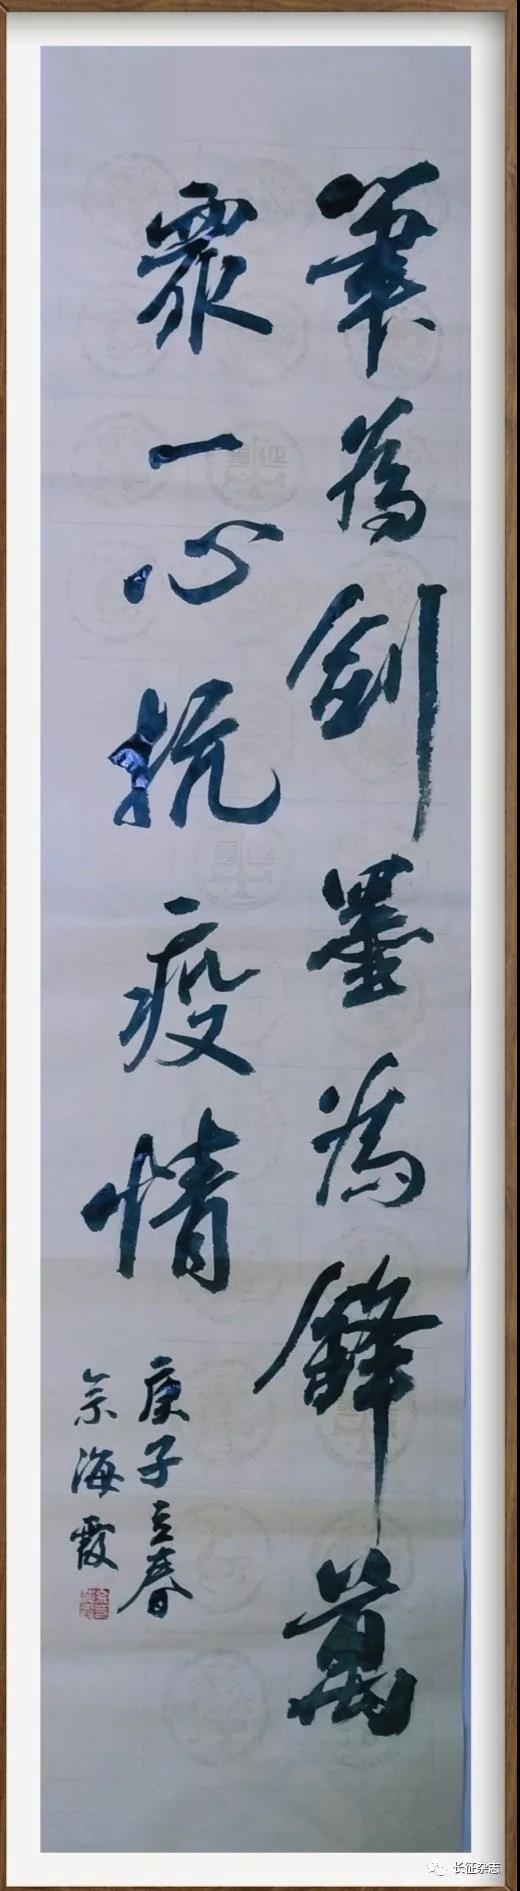 筆為劍墨為鋒萬
眾一心抗疫情
庚子立春
海霞
长征杂志